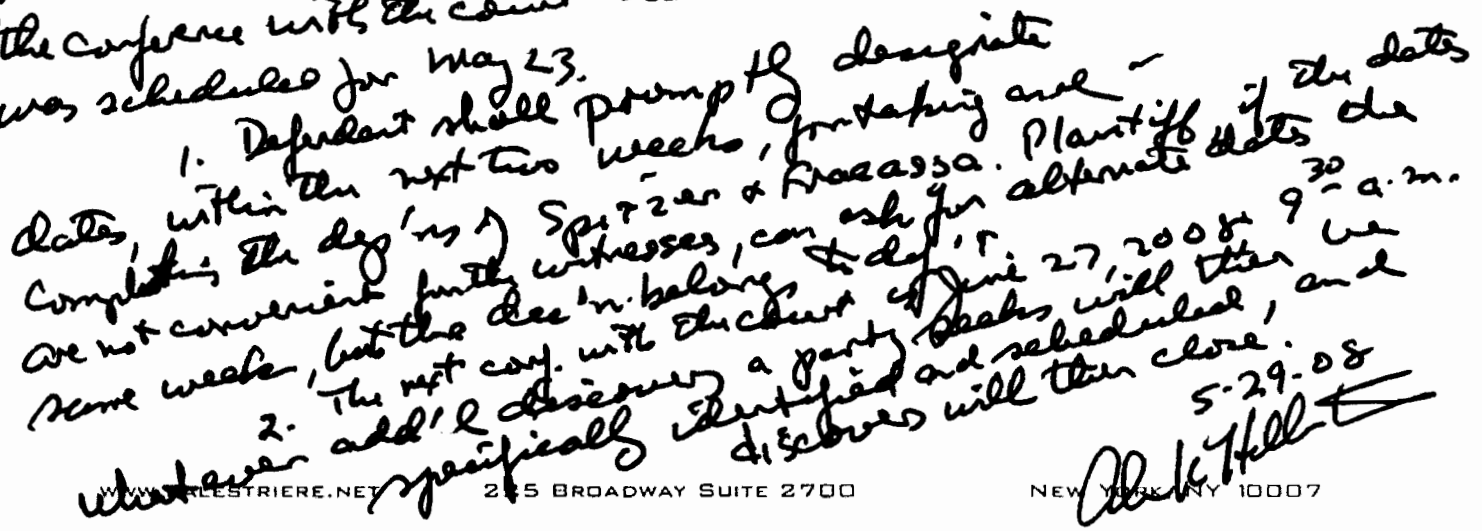 the conference with the court
was scheduled for May 23.
1. Defendant shall promptly designate
dates, within the next two weeks, for taking and
completing the dep'ns of Spitzer & Fracassa. Plaintiff, if the dates
are not convenient for the witnesses, can ask for alternate dates the
same week, but the dec'n belongs to def't.
2. The next conf. with the court is June 27, 2008 9 30 a.m.
whatever add'l discovery a party seeks will then be
specifically identified and scheduled, and
discovery will then close.
5-29-08
WWW.BALESTRIERE.NET 225 BROADWAY SUITE 2700 NEW YORK NY 10007